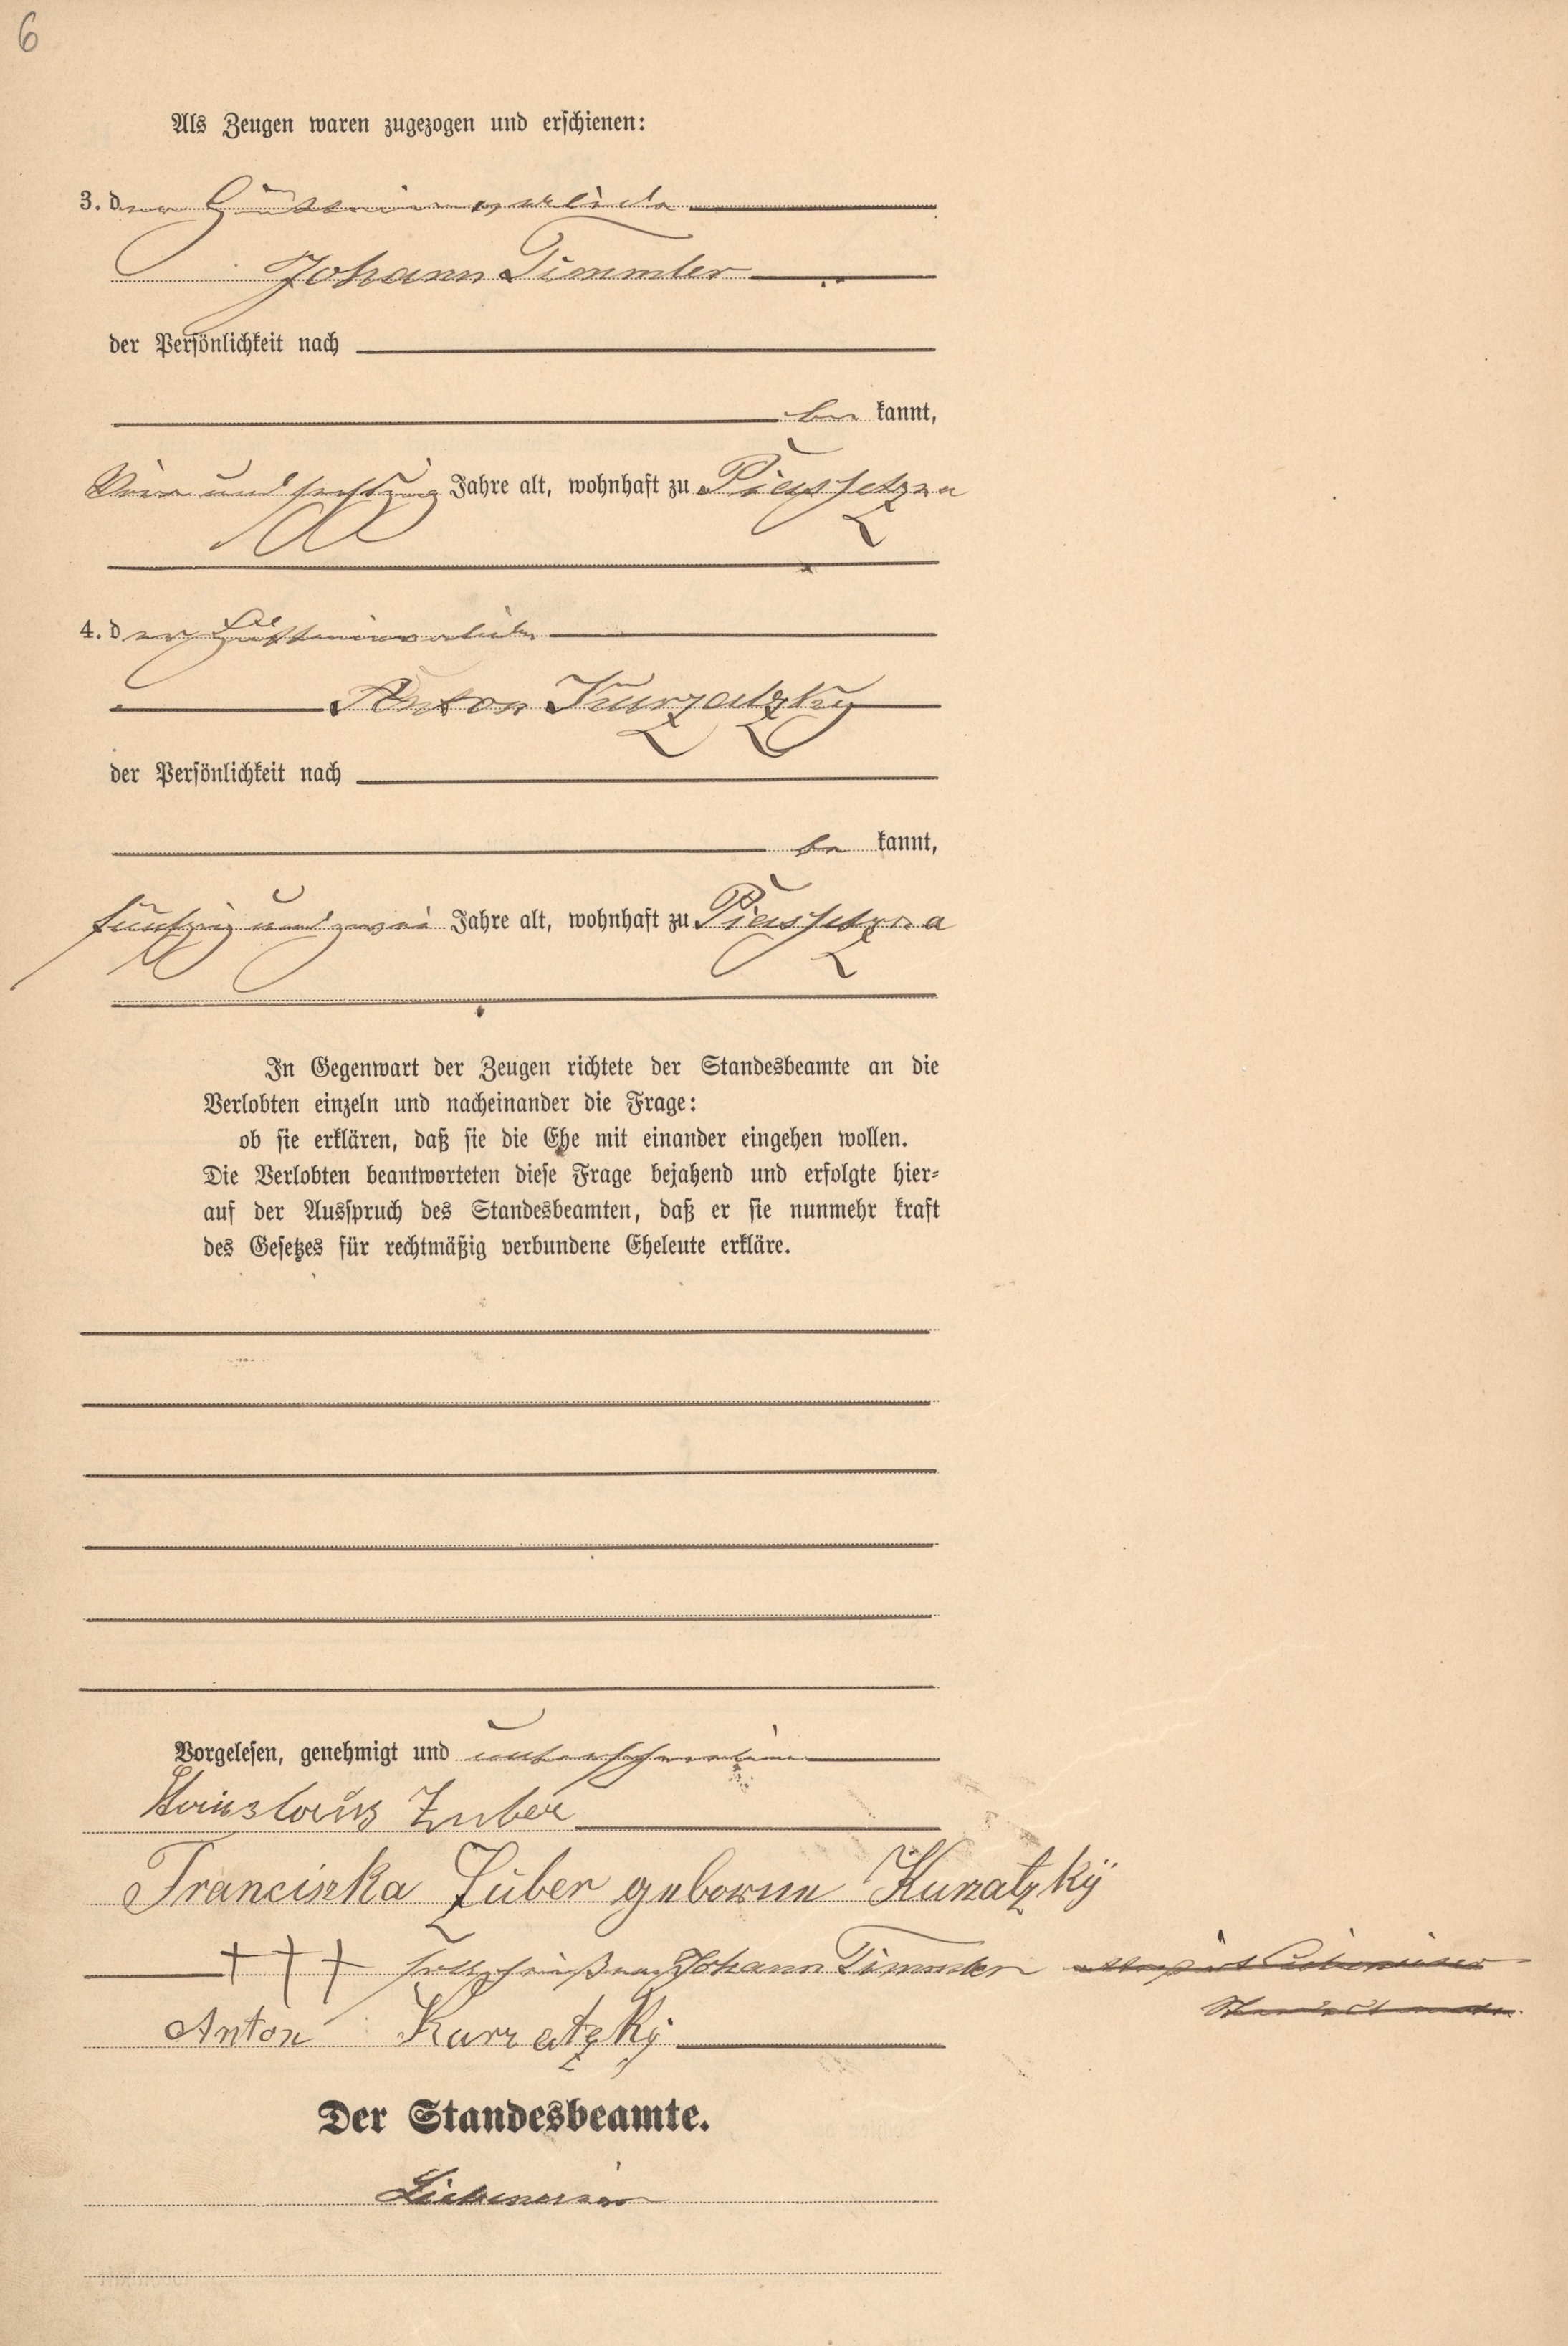 6
Als Zeugen waren zugezogen und erschienen:
3. der
Johann Timmler
der Persönlichkeit nach
be kannt,
Vier und sechszig Jahre alt, wohnhaft zu Piassetzna
4. der
Anton Kurzatzky
der Persönlichkeit nach
be kannt,
fünfzig und zwei Jahre alt, wohnhaft zu Piassetzna
In Gegenwart der Zeugen richtete der Standesbeamte an die
Verlobten einzeln und nacheinander die Frage:
ob sie erklären, daß sie die Ehe mit einander eingehen wollen.
Die Verlobten beantworteten diese Frage bejahend und erfolgte hier-
auf der Ausspruch des Standesbeamten, daß er sie nunmehr kraft
des Gesetzes für rechtmäßig verbundene Eheleute erkläre.
Vorgelesen, genehmigt und unterschrieben
Zuber
Franciszka Zuber geborene Kurzatzky
+++ Johann Timmler
Anton Kurzatzky
Der Standesbeamte.